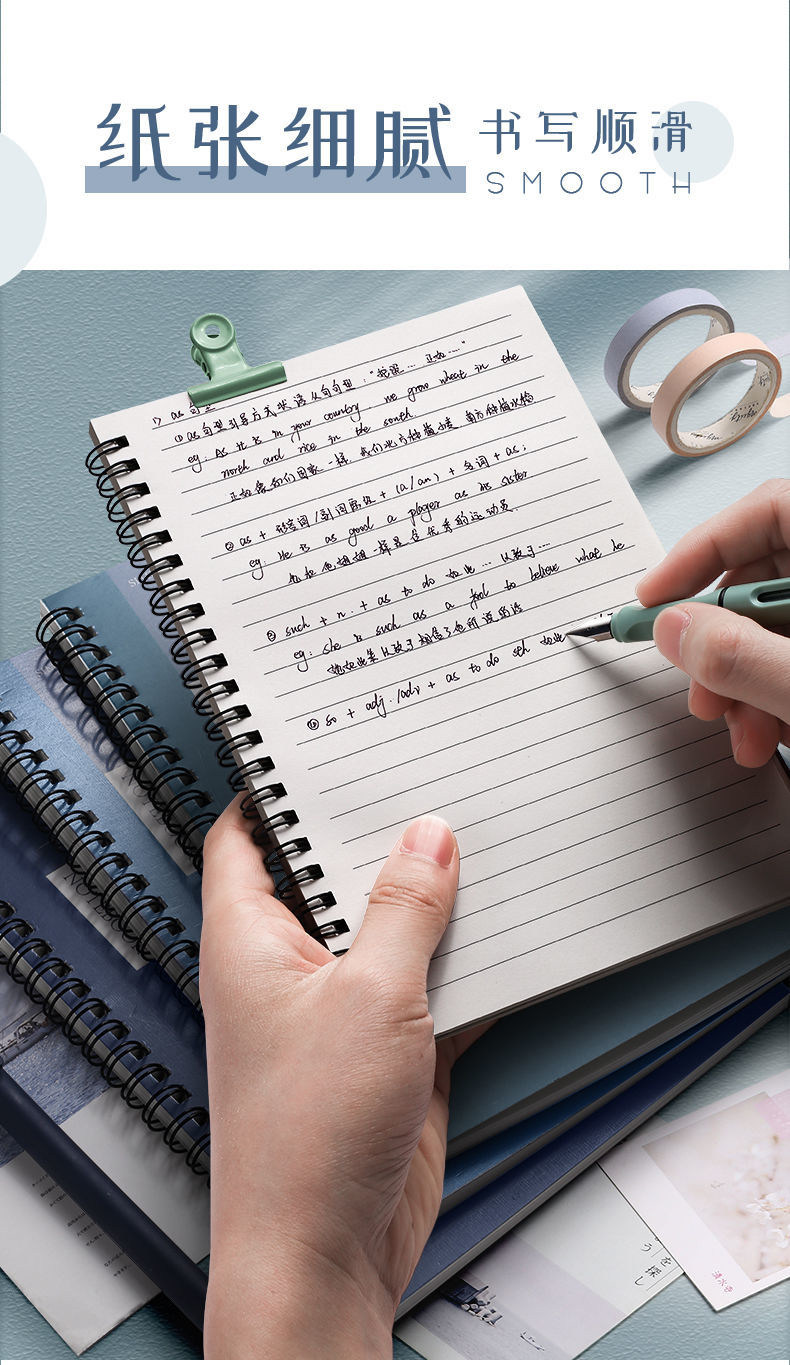 纸张细腻 书写顺滑
SMOOTH
1) as 句型
① as句型引导方式状语从句句型："按照… 正如…"
eg: As it is in your country, we grow wheat in the
north and rice in the south.
正如像你们国家一样 我们北方种植小麦 南方种植水稻
② as + 形容词/副词原级 + (a/an) + 名词 + as;
eg: He is as good a player as his sister
他和他姐姐一样是个优秀的运动员.
③ such + n. + as to do 如此… 以致于…
eg: she is such as a fool to believe what he
她如此笨以致于相信了他所说的话
④ so + adj./adv + as to do sth 如此
NOTEBOOK
清水寺
を探し
う